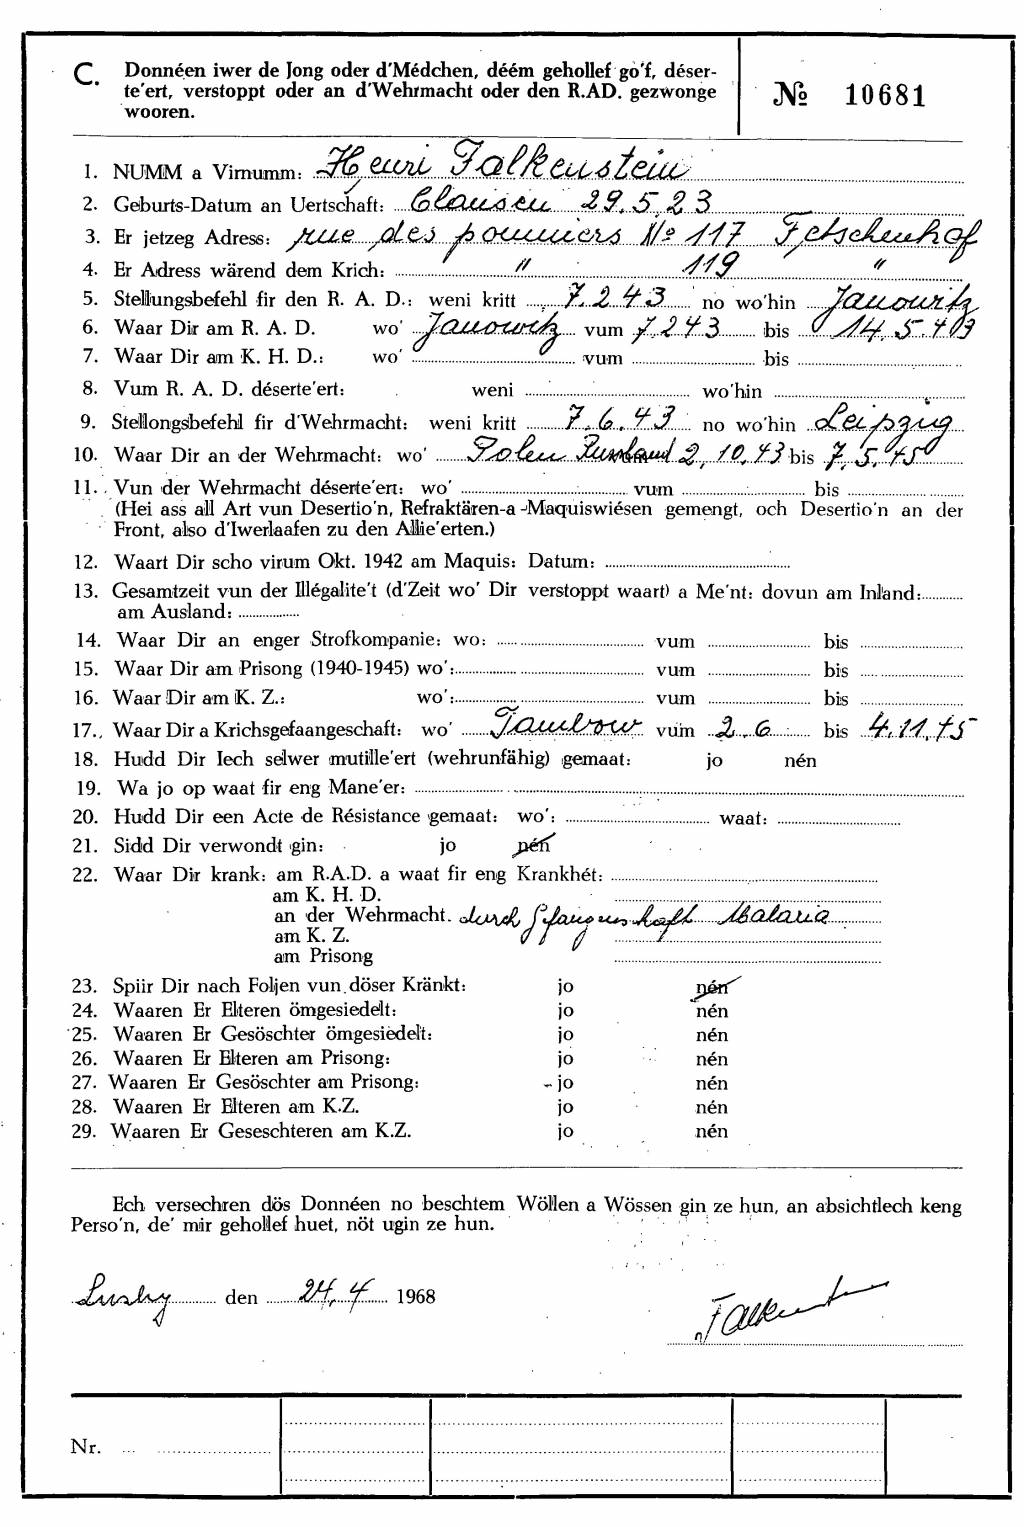 C. Donnéen iwer de Jong oder d'Médchen, déém gehollef go'f, déser-
te'ert, verstoppt oder an d'Wehrmacht oder den R.AD. gezwonge
wooren.
№ 10681
1. NUMM a Virnumm: Henri Falkenstein
2. Geburts-Datum an Uertschaft: Clausen 29.5.23
3. Er jetzeg Adress: rue des pommiers No 117 Fetschenhof
4. Er Adress wärend dem Krich: " 119 "
5. Stellungsbefehl fir den R. A. D.: weni kritt 7.2 43 no wo'hin Janowitz
6. Waar Dir am R. A. D. wo' Janowitz vum 7.2 43 bis 14.5.43
7. Waar Dir am K. H. D.: wo' vum bis
8. Vum R. A. D. déserte'ert: weni wo'hin
9. Stellongsbefehl fir d'Wehrmacht: weni kritt 7.6.43 no wo'hin Leipzig
10. Waar Dir an der Wehrmacht: wo' Polen Russland 2.10.43 bis 7.5.45
11. Vun der Wehrmacht déserte'ert: wo' vum bis
(Hei ass all Art vun Desertio'n, Refraktären-a -Maquiswiésen gemengt, och Desertio'n an der
Front, also d'Iwerlaafen zu den Allie'erten.)
12. Waart Dir scho virum Okt. 1942 am Maquis: Datum:
13. Gesamtzeit vun der Illégalite't (d'Zeit wo' Dir verstoppt waart) a Me'nt: dovun am Inland:
am Ausland:
14. Waar Dir an enger Strofkompanie: wo: vum bis
15. Waar Dir am Prisong (1940-1945) wo': vum bis
16. Waar Dir am K. Z.: wo': vum bis
17. Waar Dir a Krichsgefaangeschaft: wo' Tambow vum 2.6 bis 4.11.45
18. Hudd Dir Iech selwer mutille'ert (wehrunfähig) gemaat: jo nén
19. Wa jo op waat fir eng Mane'er:
20. Hudd Dir een Acte de Résistance gemaat: wo': waat:
21. Sidd Dir verwondt gin: jo nén
22. Waar Dir krank: am R.A.D. a waat fir eng Krankhét:
am K. H. D.
an der Wehrmacht. durch Gefangenschaft Malaria
am K. Z.
am Prisong
23. Spiir Dir nach Foljen vun döser Kränkt: jo nén
24. Waaren Er Elteren ömgesiedelt: jo nén
25. Waaren Er Gesöschter ömgesiedelt: jo nén
26. Waaren Er Elteren am Prisong: jo nén
27. Waaren Er Gesöschter am Prisong: jo nén
28. Waaren Er Elteren am K.Z. jo nén
29. Waaren Er Geseschteren am K.Z. jo nén
Ech versechren dös Donnéen no beschtem Wöllen a Wössen gin ze hun, an absichtlech keng
Perso'n, de' mir gehollef huet, nöt ugin ze hun.
den 24.4 1968
Nr.